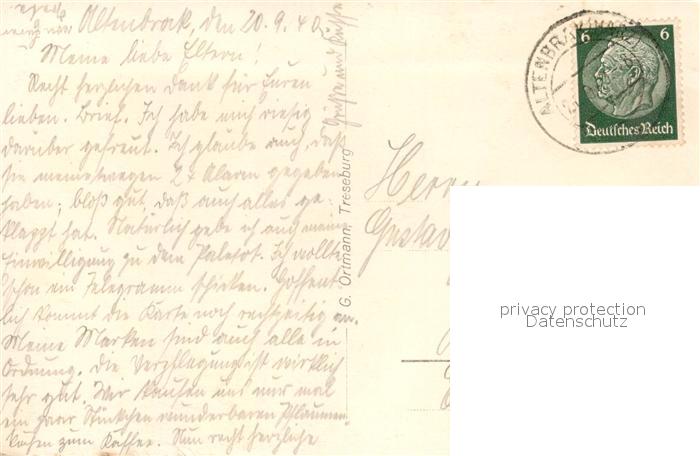 Altenbrak, den 20.9.40.
Meine liebe Eltern!
Recht herzlichen Dank für Euren
lieben Brief. Ich habe mich riesig
darüber gefreut. Ich glaube auch, daß
sie meinetwegen 2x Alarm gegeben
haben; bloß gut, daß auch alles ge-
klappt hat. Natürlich gebe ich auch meine
Einwilligung zu dem Paletot. Ich wollte
schon ein Telegramm schicken. Hoffent-
lich kommt die Karte noch rechtzeitig an.
Meine Marken sind auch alle in
Ordnung. Die Verpflegung ist wirklich
sehr gut. Wir kaufen uns nur mal
ein paar Stückchen wunderbaren Pflaumen-
kuchen zum Kaffee. Nun recht herzliche
Grüße und Küsse
G. Ortmann, Treseburg
Herrn
Gustav
ALTENBRAK
6 6
Deutsches Reich
privacy protection
Datenschutz